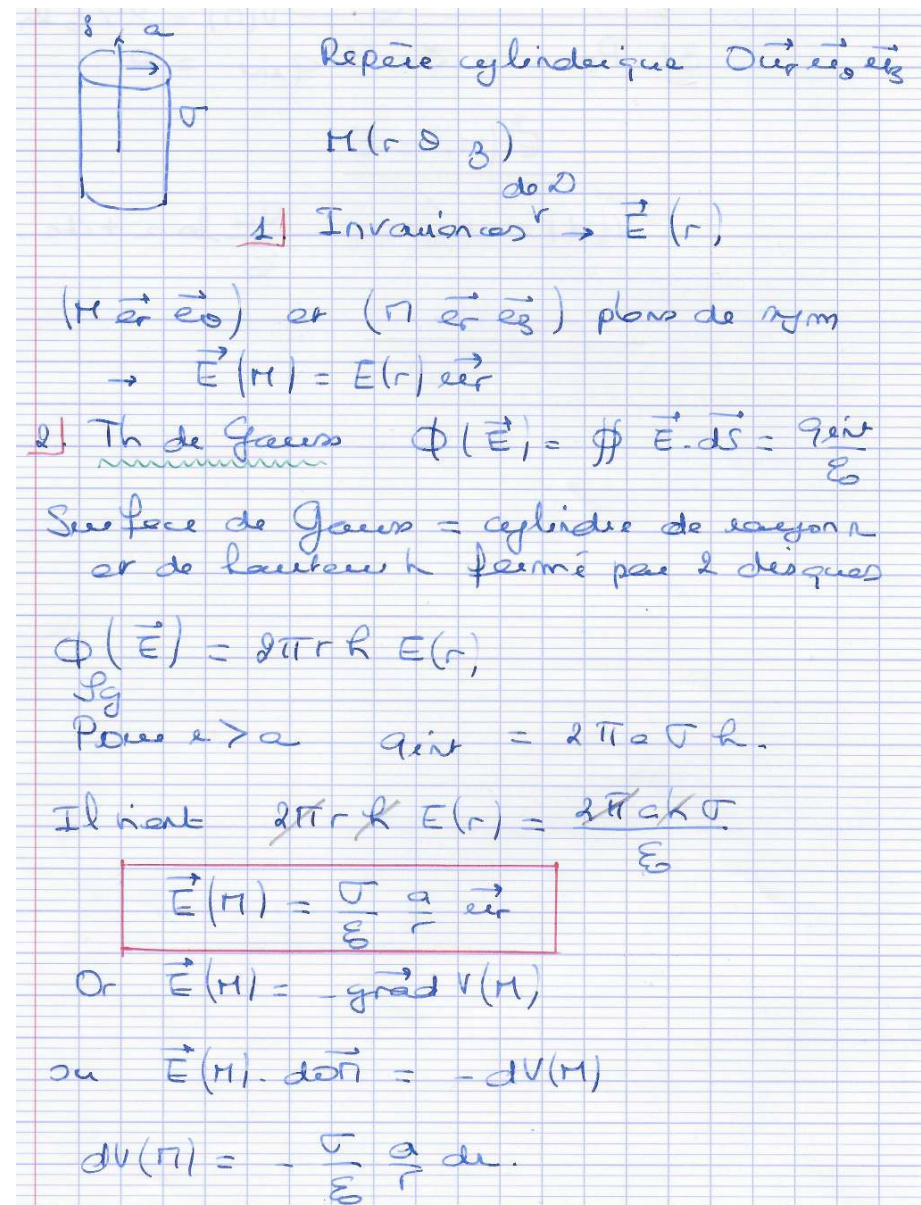 z a
Repère cylindrique O u⃗r u⃗θ u⃗z
σ
M(r θ z)
de D
1| Invariances → E⃗(r)
(M e⃗r e⃗θ) et (M e⃗r e⃗z) plans de sym
→ E⃗(M) = E(r) u⃗r
2| Th de Gauss Φ(E⃗) = ∯ E⃗.dS⃗ = qint/ε0
Surface de Gauss = cylindre de rayon r
et de hauteur h fermé par 2 disques
Φ(E⃗) = 2πrh E(r)
Sg
Pour r > a qint = 2πaσh.
Il vient 2πrh E(r) = 2πahσ/ε0
E⃗(M) = σ/ε0 a/r u⃗r
Or E⃗(M) = -grad⃗ V(M)
ou E⃗(M). dOM⃗ = -dV(M)
dV(M) = - σ/ε0 a/r dr.